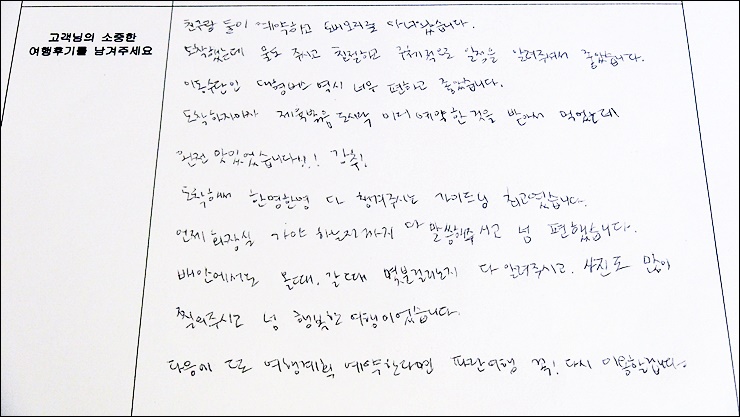 고객님의 소중한
여행후기를 남겨주세요
친구랑 둘이 예약하고 다녀왔습니다.
도착했는데 물도 주시고 친절하고 구체적으로 일정을 알려주셔서 좋았습니다.
이동수단인 대형버스 역시 너무 편하고 좋았습니다.
도착하자마자 제육볶음 도시락 미리 예약한 것을 받아서 먹었는데
완전 맛있었습니다!! 강추!
도착해서 한명한명 다 챙겨주시는 가이드님 최고였습니다.
언제 화장실 가야 하는지까지 다 말씀해주시고 넘 편했습니다.
배안에서도 올때, 갈때 몇분걸리는지 다 알려주시고, 사진도 많이
찍어주시고 넘 행복한 여행이었습니다.
다음에 또 여행계획 예약한다면 파란여행 꼭! 다시 이용할겁니다.